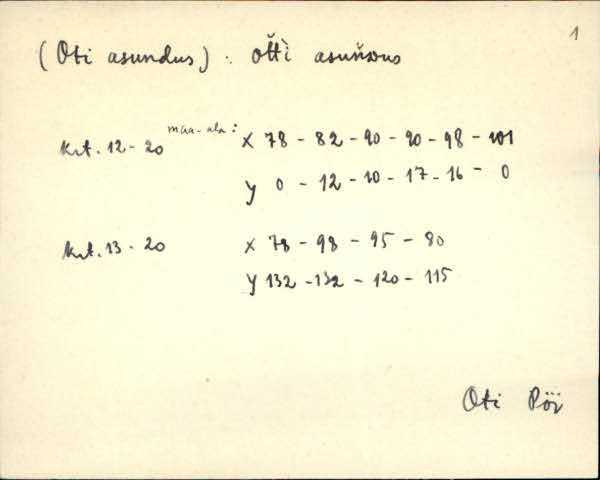 1
(Oti asundus). ot̆t̀i asun̆ᴅus
Krt. 12-20 maa-ala: X 78 - 82 - 90 - 90 - 98 - 101
Y 0 - 12 - 10 - 17 - 16 - 0
Krt. 13 - 20 X 78 - 98 - 95 - 80
Y 132 - 132 - 120 - 115
Oti Pöi